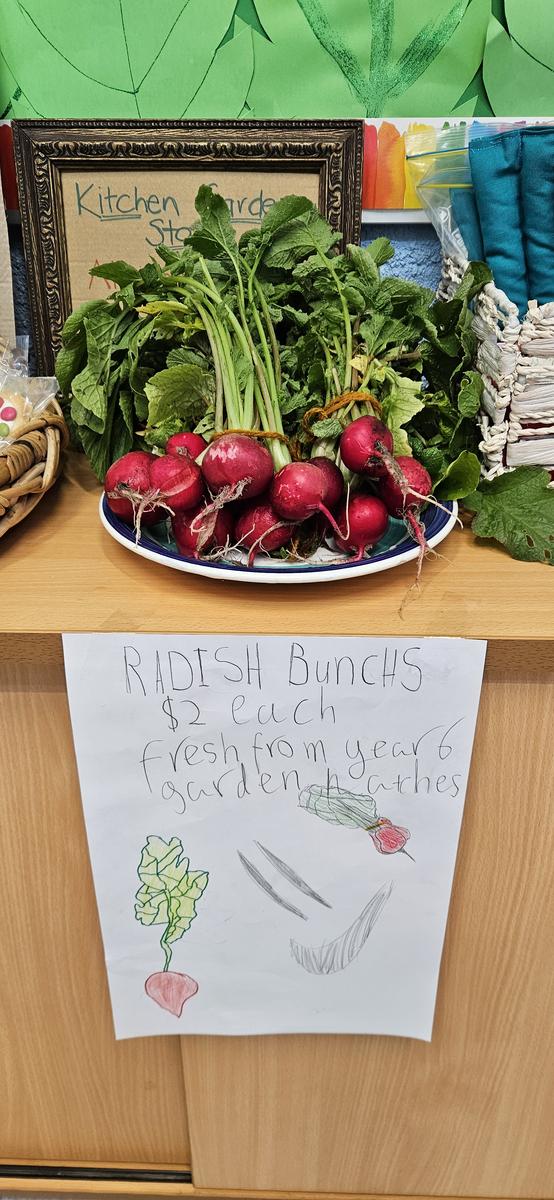 Kitchen Garde
RADISH BunCHS
$2 each
fresh from year 6
garden patches